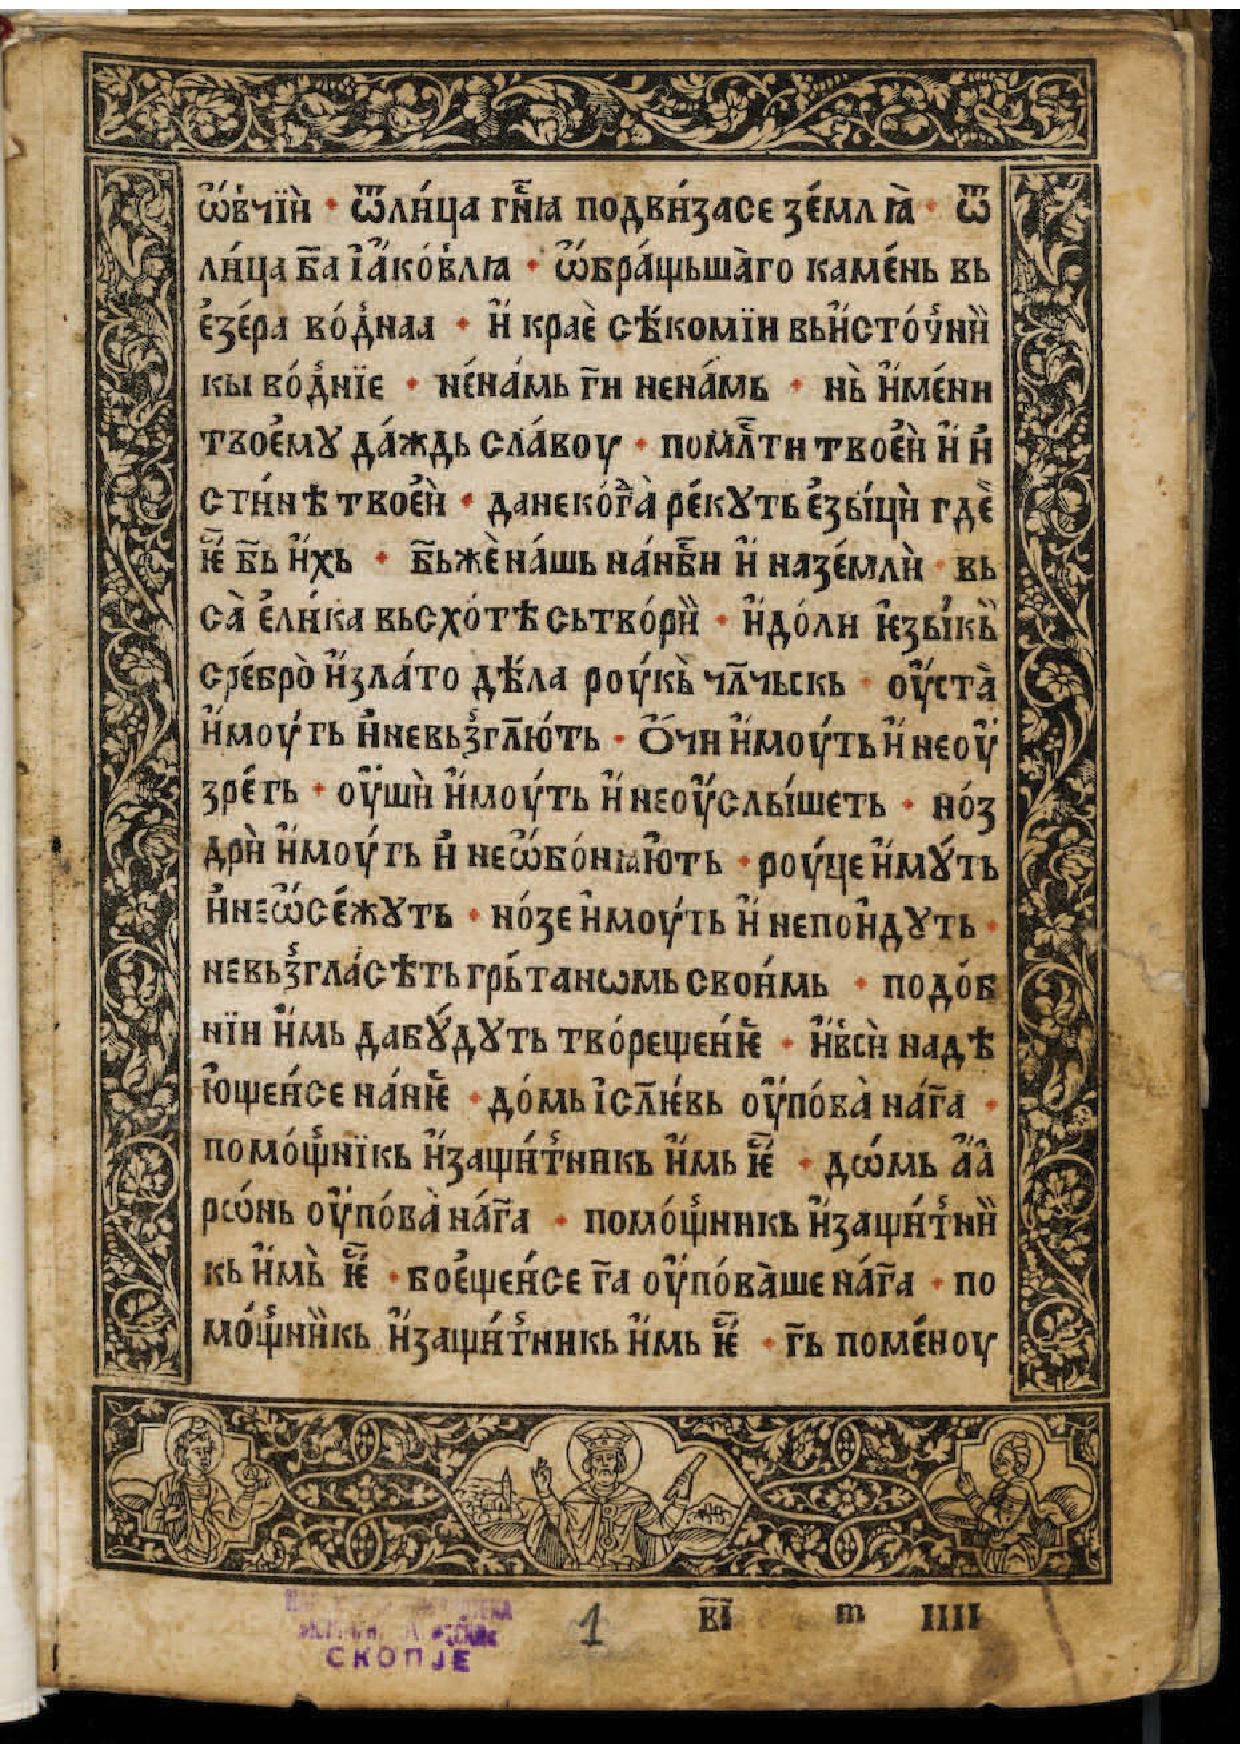 ѿвчїи · ѿлица гн҃ꙗ подвизасе землꙗ · ѿ
лица ба҃ їаковлꙗ · ѡбращьшаго камень вь
езера воднаа · и крае сѣкомїи вьисточни
кы воднїе · ненамь гн҃ ненамь · нь имени
твоемꙋ даждь славоу · помлⷭ҇ти твоеи и и
стинѣ твоеи · данекогда рекꙋть езыци где
ѥ҃ бь҃ ихь · бь҃же нашь нанб҃и и наземли · вь
са елика вьсхотѣ сьтвори · идоли ѥзыкь
сребро излато дѣла роукь чл҃чьскь · оуста
имоуть иневьзгл҃ють · Очи имоуть и неоу
зреть · оуши имоуть и неоуслышеть · ноз
дри имоуть и неѡбонꙗють · роуце имꙋть
инеѡсежꙋть · нозе имоуть и непоидꙋть ·
невьзгласѣть грьтаномь своимь · подоб
нїи имь дабꙋдꙋть творещеиѥ · ивси надѣ
ющеисе наниѥ · домь їсл҃ѥвь оупова наг҃а ·
помощнїкь изащитникь имь ѥ҃ · дѡмь аа
рѡнь оупова наг҃а · помощникь изащитни
кь имь ѥ҃ · боещеисе г҃а оуповаше наг҃а · по
мощникь изащитникь имь ѥ҃ · г҃ь поменоу
СКОПЈЕ
1
в҃і т IIII